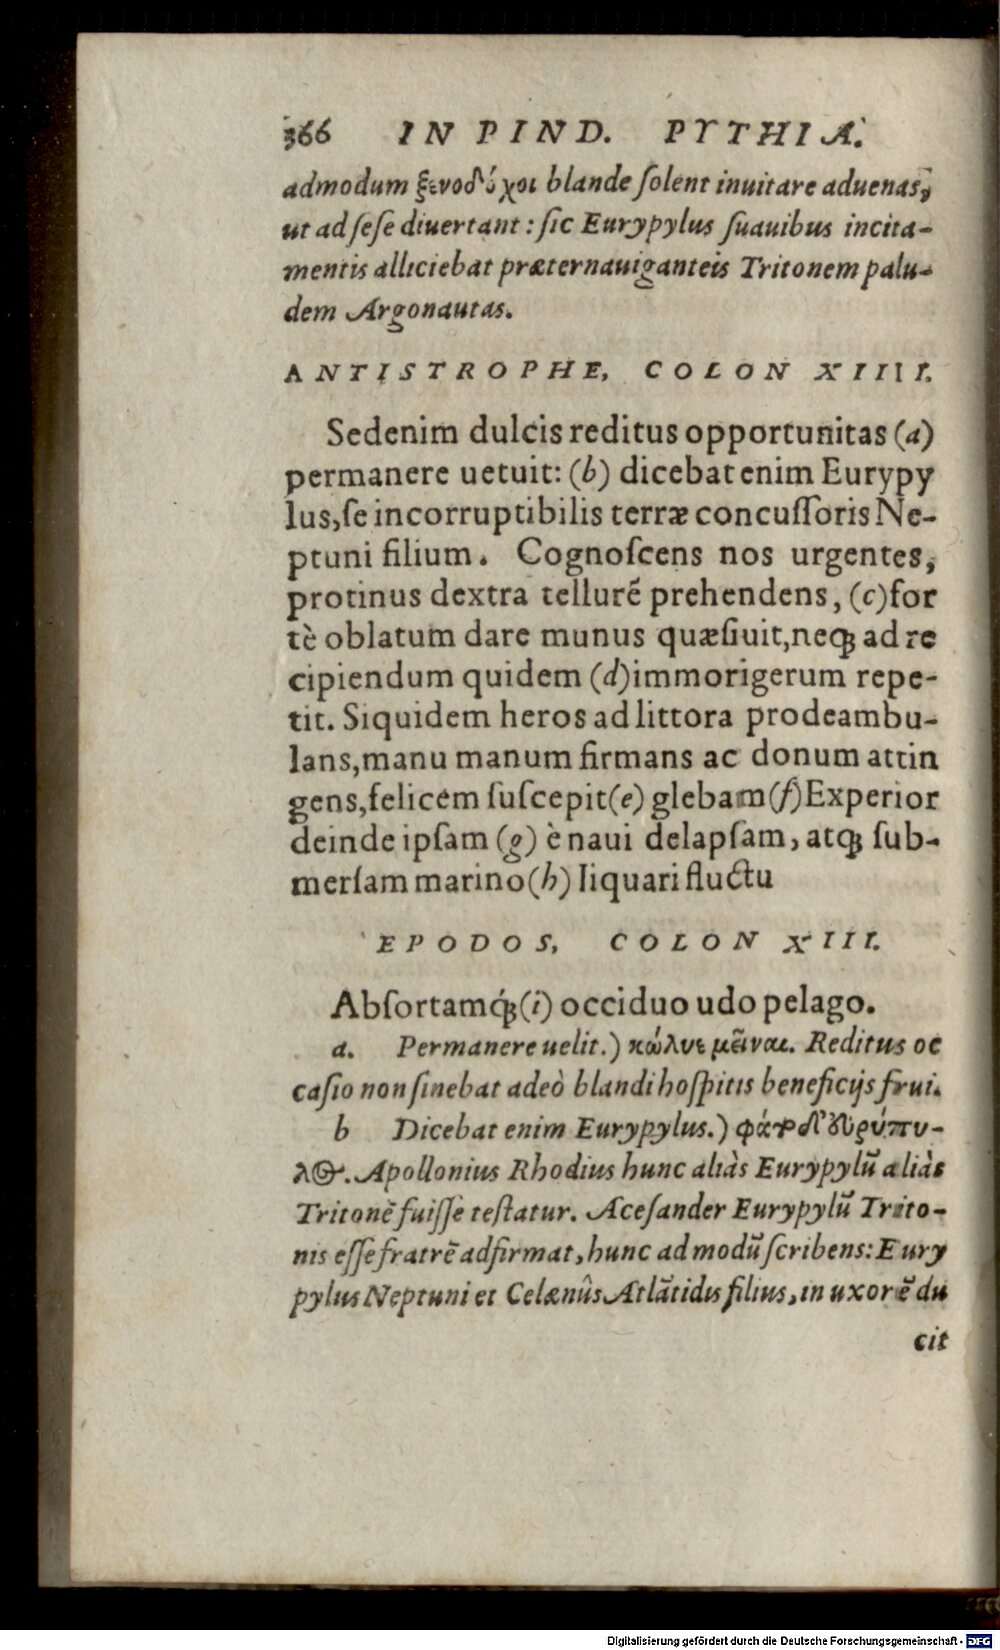 366 IN PIND. PYTHIA.
admodum ξενοδόχοι blande ſolent inuitare aduenas,
ut ad ſeſe diuertant: ſic Eurypylus ſuauibus incita-
mentis alliciebat præternauiganteis Tritonem palu-
dem Argonautas.
ANTISTROPHE, COLON XIIII.
Sedenim dulcis reditus opportunitas (a)
permanere uetuit: (b) dicebat enim Eurypy
lus, ſe incorruptibilis terræ concuſſoris Ne-
ptuni filium. Cognoſcens nos urgentes,
protinus dextra tellurẽ prehendens, (c) for
tè oblatum dare munus quæſiuit, neq; ad re
cipiendum quidem (d) immorigerum repe-
tit. Siquidem heros ad littora prodeambu-
lans, manu manum firmans ac donum attin
gens, felicem ſuſcepit (e) glebam (f) Experior
deinde ipſam (g) è naui delapſam, atq; ſub-
merſam marino (h) liquari fluctu
EPODOS, COLON XIII.
Abſortamq́; (i) occiduo udo pelago.
a. Permanere uelit.) κώλυε μεῖναι. Reditus oc
caſio non ſinebat adeò blandi hoſpitis beneficijs frui.
b Dicebat enim Eurypylus.) φάτο δ' Εὐρύπυ-
λος. Apollonius Rhodius hunc aliàs Eurypylũ aliàs
Tritonẽ fuiſſe teſtatur. Aceſander Eurypylũ Trito-
nis eſſe fratrẽ adfirmat, hunc ad modũ ſcribens: Eury
pylus Neptuni et Celænûs Atlãtidis filius, in uxorẽ du
cit
Digitalisierung gefördert durch die Deutsche Forschungsgemeinschaft - DFG